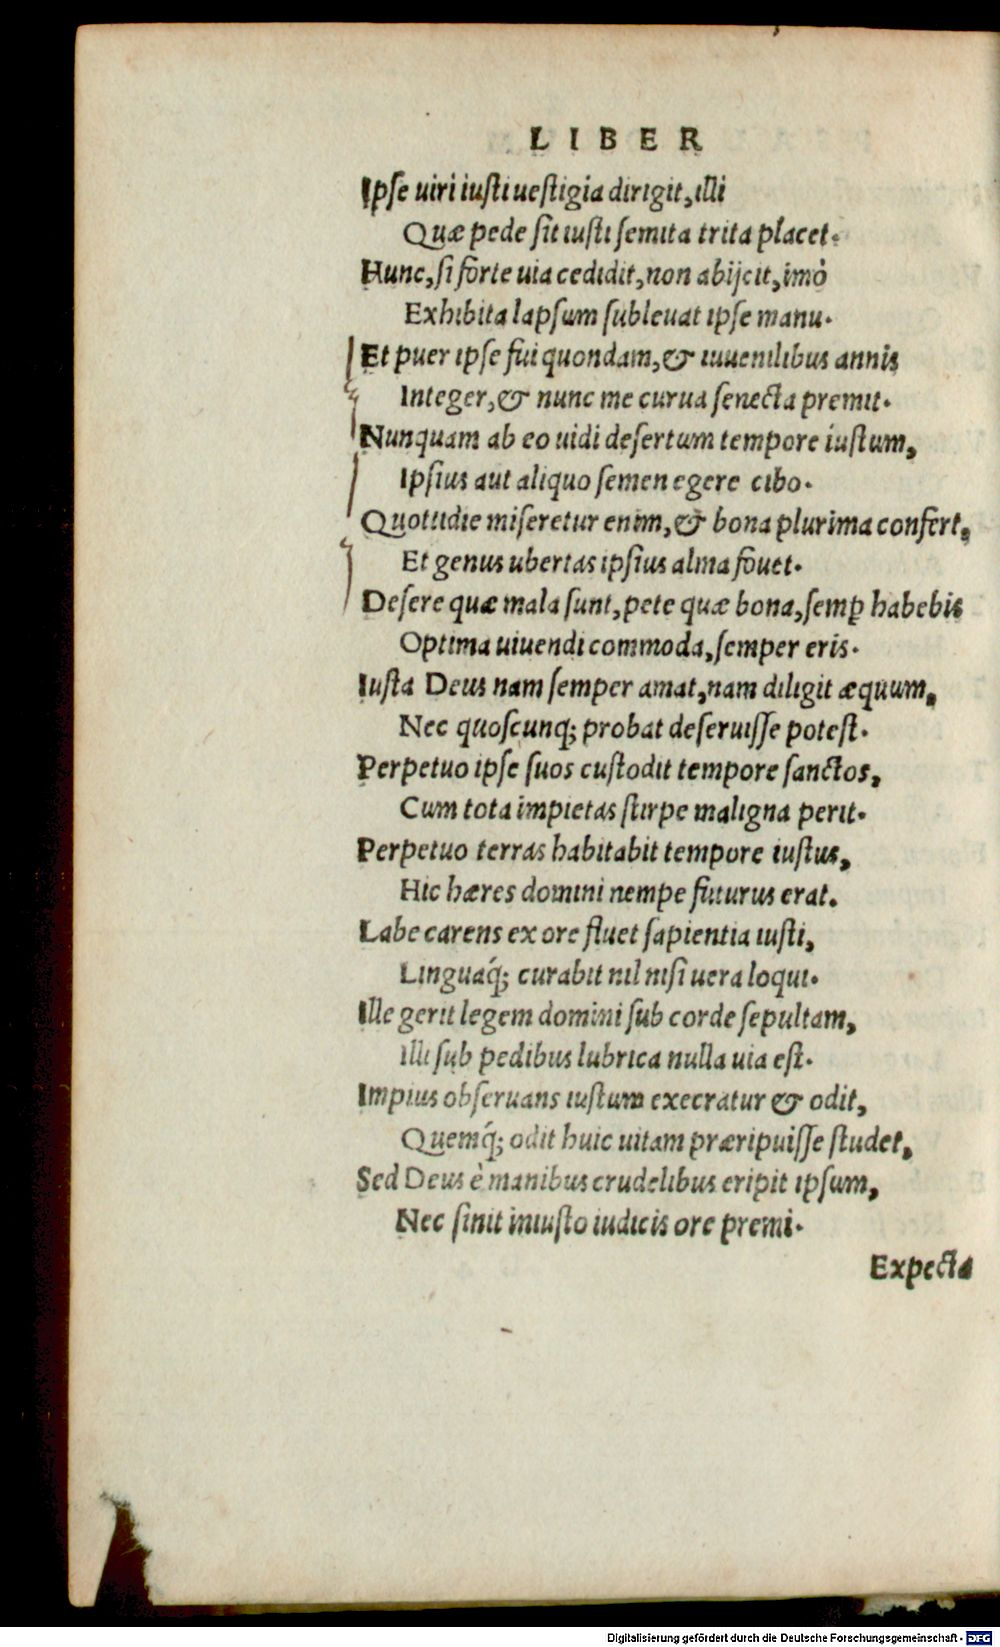 LIBER
Ipse uiri iusti uestigia dirigit, illi
Quæ pede sit iusti semita trita placet.
Hunc, si forte uia cedidit, non abijcit, imò
Exhibita lapsum subleuat ipse manu.
Et puer ipse fui quondam, & iuuenilibus annis
Integer, & nunc me curua senecta premit.
Nunquam ab eo uidi desertum tempore iustum,
Ipsius aut aliquo semen egere cibo.
Quottidie miseretur enim, & bona plurima confert,
Et genus ubertas ipsius alma fouet.
Desere quæ mala sunt, pete quæ bona, semꝑ habebis
Optima uiuendi commoda, semper eris.
Iusta Deus nam semper amat, nam diligit æquum,
Nec quoscunq; probat deseruisse potest.
Perpetuo ipse suos custodit tempore sanctos,
Cum tota impietas stirpe maligna perit.
Perpetuo terras habitabit tempore iustus,
Hic hæres domini nempe futurus erat.
Labe carens ex ore fluet sapientia iusti,
Linguaq́; curabit nil nisi uera loqui.
Ille gerit legem domini sub corde sepultam,
Illi sub pedibus lubrica nulla uia est.
Impius obseruans iustum execratur & odit,
Quemq́; odit huic uitam præripuisse studet,
Sed Deus è manibus crudelibus eripit ipsum,
Nec sinit iniusto iudicis ore premi.
Expecta
Digitalisierung gefördert durch die Deutsche Forschungsgemeinschaft - DFG